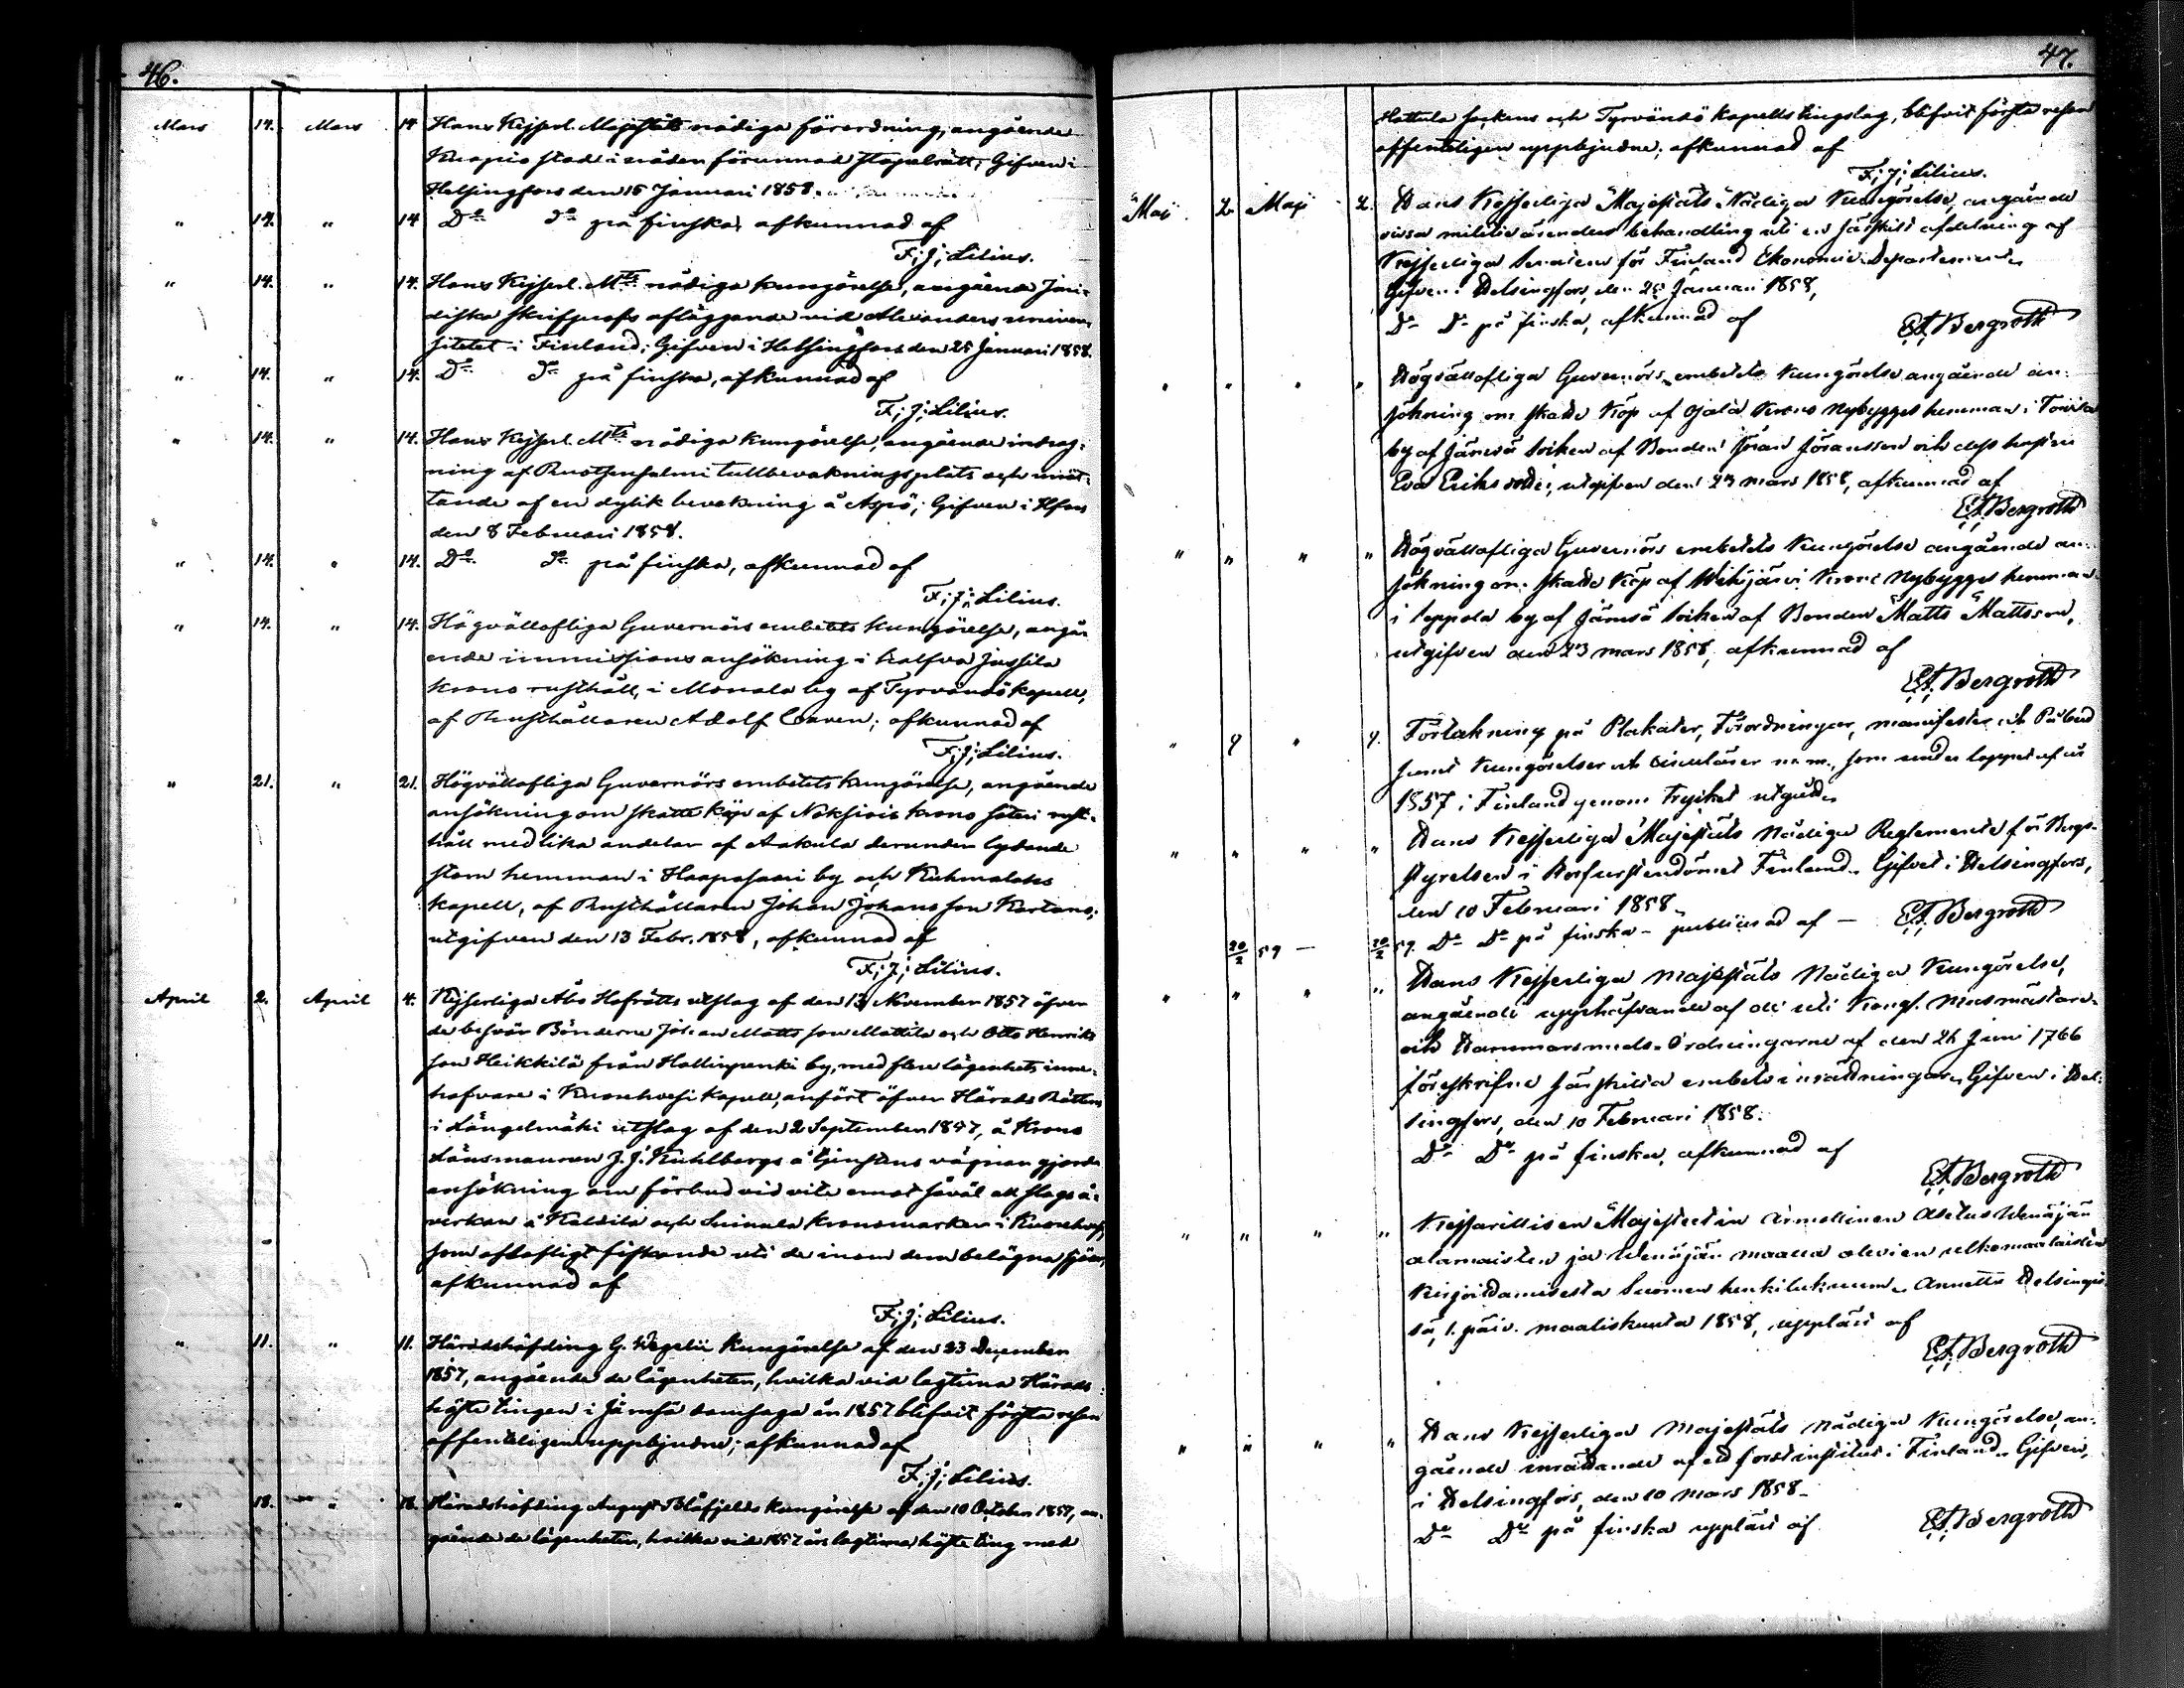 46.
Mars 14. Mars 14 Hans Kejserl. Majestäts nådiga förordning, angående
Kuopio stad i nåden förunnad stapelrätt; Gifven i
Helsingfors den 15 Januari 1858.
" 14. " 14 Do do på finska, afkunnad af
F; J; Lilius.
" 14. " 14. Hans Kejserl. Mts nådiga kungörelse, angående juri-
diska skrifprofs afläggande vid Alexanders univer-
sitetet i Finland; Gifven i Helsingfors den 25 Januari 1858.
" 14. " 14. Do do på finska, afkunnad af
F; J; Lilius.
" 14. " 14. Hans Kejserl. Mts nådiga kungörelse, angående indrag-
ning af tullbevakningsplats och inrät-
tande af en dylik bevakning å Aspö; Gifven i Hfors
den 8 Februari 1858.
" 14. " 14. Do do på finska, afkunnad af
F; J; Lilius.
" 14. " 14. Högvällofliga Guvernörs embetets kungörelse, angå-
ende immissions ansökning i halfva Jussila
krono rusthåll, i Monala by af Tyrvändö kapell,
af Rusthållaren Adolf ; afkunnad af
F; J; Lilius.
" 21. " 21. Högvällofliga Guvernörs embetets kungörelse, angående
ansökning om skatte köp af krono säteri rust-
håll med lika andelar af Aakula derunder lydande
stom hemman i Haapasaari by och Kuhmalahti
kapell, af Rusthållaren Johan Johansson ;
utgifven den 13 Febr. 1858, afkunnad af
F; J; Lilius.
April 2. April 4. Kejserliga Åbo Hofrätts utslag af den 13 November 1857 öfver
de besvär Bönderne Johan Mattsson Mattila och Otto Henriks
son Heikkilä från Hallinpenki by, med flere lägenhets inne-
hafvare i Kuorehvesi kapell, anfört öfver Härads Rättens
i Längelmäki utslag af den 2 September 1847, å Krono
Länsmannen J. J. Kuhlbergs å tjenstens vägnar gjorda
ansökning om förbud vid vite emot såväl all slags å-
verkan å och kronomarker i Kuorehvesi,
som olofligt fiskande uti de inom dem belägna sjöar,
afkunnad af
F; J; Lilius.
" 11. " 11. Häradshöfding G. Wegelii kungörelse af den 23 December
1857, angående de lägenheter, hvilka vid lagtima Härads
höste tingen i Jämsä domsaga år 1857 blifvit första resan
offenteligen uppbjudne; afkunnad af
F; J; Lilius.
" 18. " 18. Häradshöfding August Blåfjelds kungörelse af den 10 October 1857, an-
gående de lägenheter, hvilka vid 1857 års lagtima höste ting med
47.
Hattula sockens och Tyrvändö kapells tingslag, blifvit första resan
offenteligen uppbjudne; afkunnad af
F; J; Lilius.
Maj 2. Maj 2. Hans Kejserliga Majestäts Nådiga Kungörelse, angående
vissa militie ärenders behandling uti en särskild afdelning af
Kejserliga Senaten för Finland Ekonomie Departement.
Gifven i Helsingfors, den 25 Januari 1858,
Do Do på finska, afkunnad af Ef. Bergroth
" " " " Högvällofliga Guvernörs-embetets Kungörelse angående an-
sökning om skatte köp af Ojala Krono Nybygges hemman i
by af Jämsä socken af Bonden Jöran Göransson och dess hustru
Eva Eriksdotter, utgifven den 23 mars 1858, afkunnad af
Ef. Bergroth
" " " " Högvällofliga Guvernörs embetets Kungörelse angående an-
sökning om skatte köp af Wehijärvi Krono Nybygges hemman
i Seppola by af Jämsä socken af Bonden Matts Mattsson,
utgifven den 23 mars 1858, afkunnad af
Ef. Bergroth
" 9 " 9. Förtekning på Plakater, Förordningar, manifester och Påbud
samt Kungörelser och Circulärer m. m., som under loppet af år
1857 i Finland genom trycket utgått.
" " " " Hans Kejserliga Majestäts Nådiga Reglemente för Bergs-
styrelsen i Storfurstendömet Finland. Gifvet i Helsingfors,
den 10 Februari 1858.
20/2 59 — 20/2 59. Do Do på finska - publicerad af — Ef. Bergroth
" " " " Hans Kejserliga Majestäts Nådiga Kungörelse,
angående upphäfvande af de uti Kongl. Masmästare-
och Hammarsmeds-Ordningarne af den 26 Juni 1766
föreskrifne särskilda embetsinrättningar. Gifven i Hel-
singfors, den 10 Februari 1858.
Do Do på finska, afkunnad af
Ef. Bergroth
" " " " Keisarillisen Majesteetin Armollinen Asetus Wenäjän
alamaisten ja Wenäjän maalla olevien ulkomaalaisten
kirjoittamisesta Suomen henkilukuun. Annettu Helsingis-
sä, 1. päiv. maaliskuuta 1858, uppläst af
Ef. Bergroth
" " " " Hans Kejserliga Majestäts Nådiga Kungörelse, an-
gående inrättande af ett forstinstitut i Finland. Gifven,
i Helsingfors, den 10 mars 1858.
Do Do på finska uppläst af Ef. Bergroth